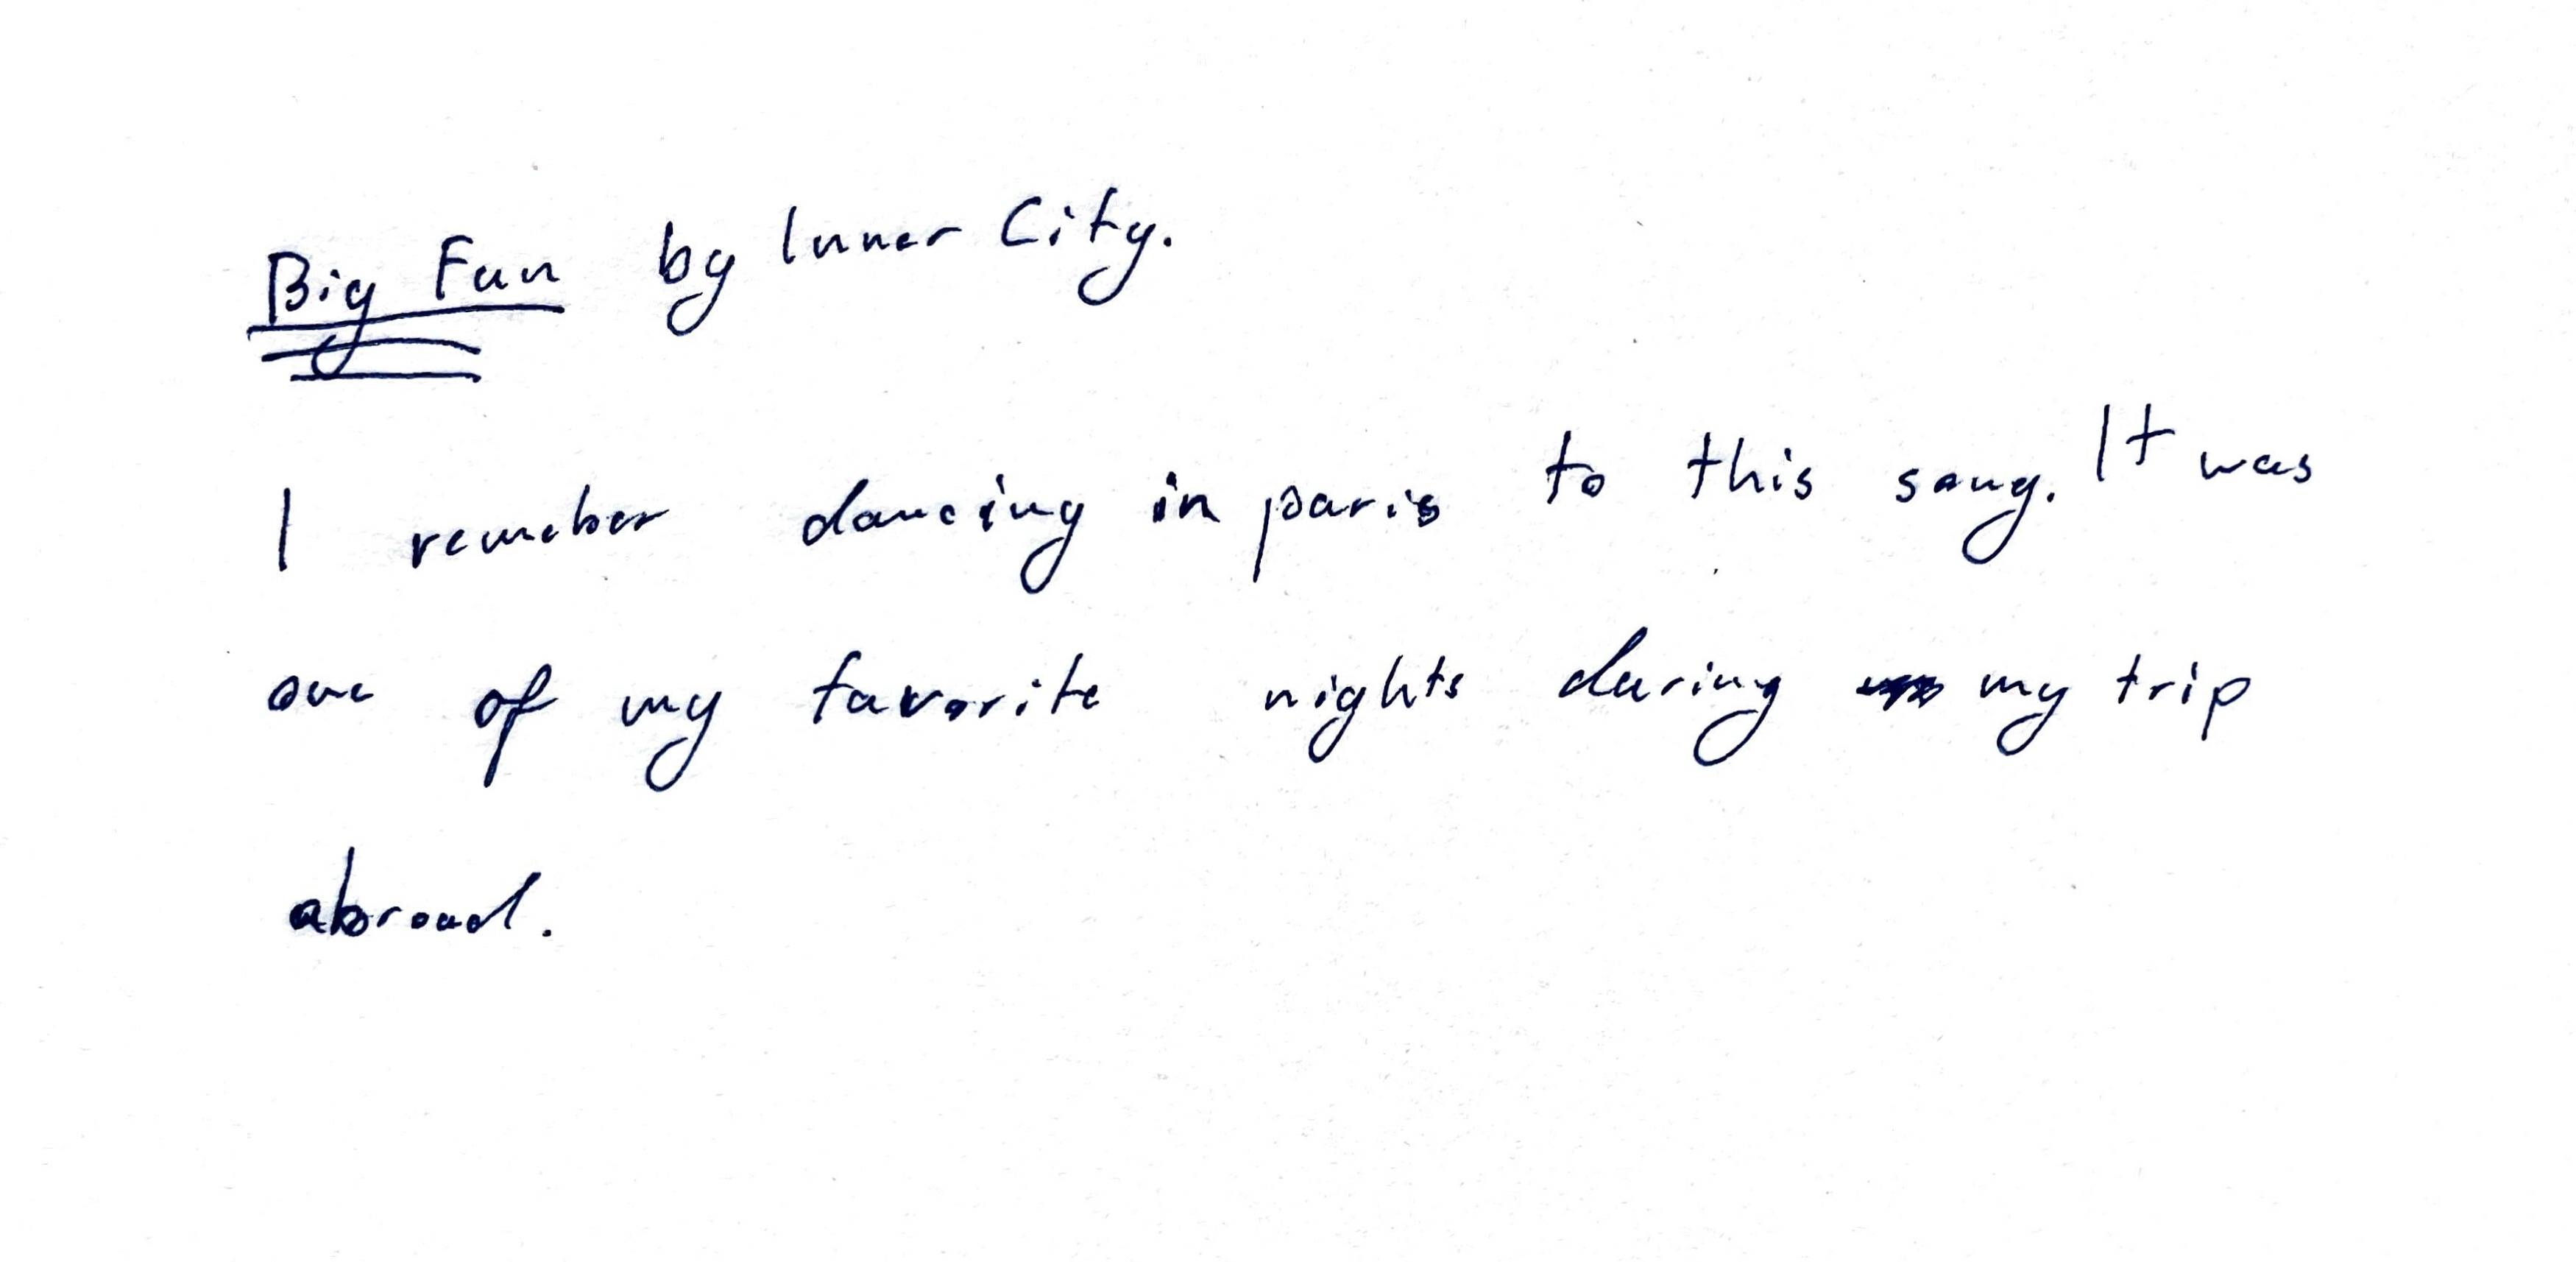 Big Fun by Inner City.
I remeber dancing in paris to this song. It was
one of my favorite nights during my trip
abroad.